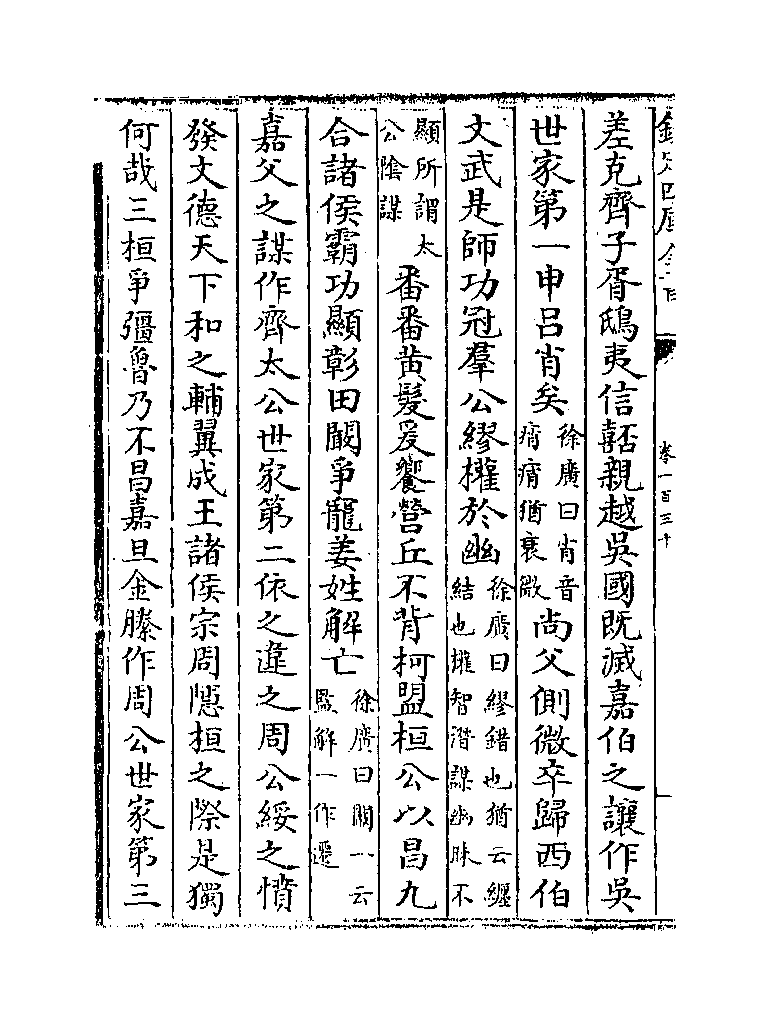 欽定四庫全書
卷一百三十
差克齊子胥鴟夷信嚭親越吳國既滅嘉伯之讓作吳
世家第一申呂肖矣徐廣曰肖音痟痟猶衰微尚父側微卒歸西伯
文武是師功冠羣公繆權於幽徐廣曰繆錯也猶云纏結也權智潛謀幽昧不
顯所謂太公陰謀番番黄髮爰饗營丘不背柯盟桓公以昌九
合諸侯霸功顯彰田闞爭寵姜姓解亡徐廣曰闞一云監解一作遷
嘉父之謀作齊太公世家第二依之違之周公綏之憤
發文德天下和之輔翼成王諸侯宗周隱桓之際是獨
何哉三桓爭彊魯乃不昌嘉旦金縢作周公世家第三